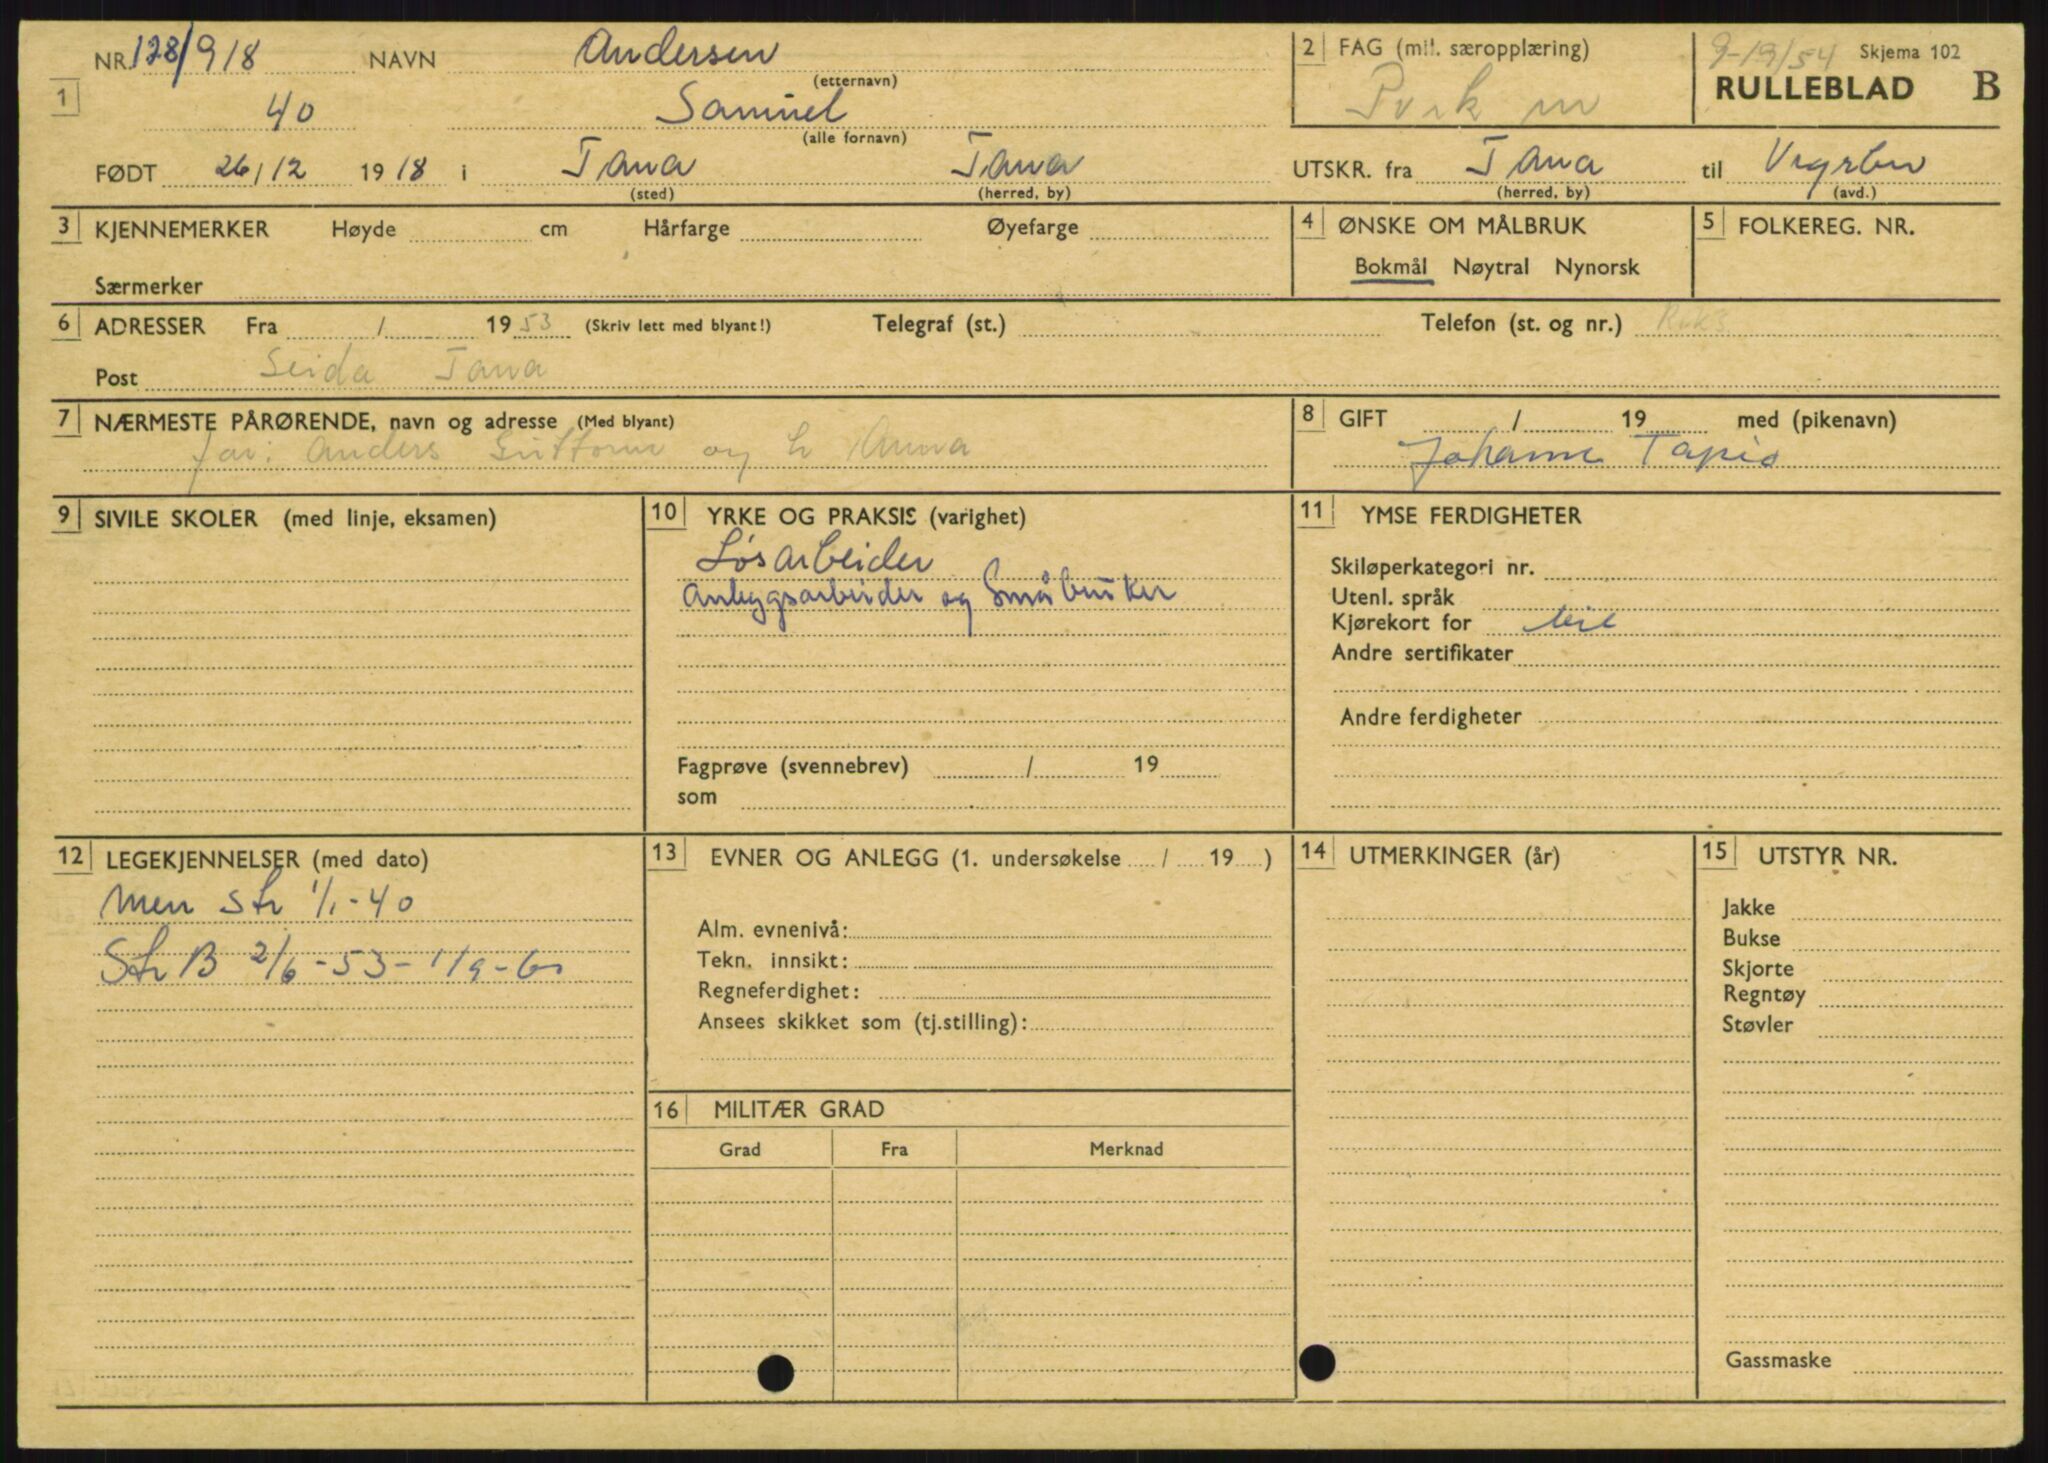 NR. 128/918 NAVN Andersen 2 FAG (mil. særopplæring) 9-19/54 Skjema 102
(etternavn) RULLEBLAD B
1 40 Samuel
(alle fornavn)
FØDT 26/12 1918 i Tana Tana UTSKR. fra Tana til
(sted) (herred, by) (herred, by) (avd.)
3 KJENNEMERKER Høyde cm Hårfarge Øyefarge 4 ØNSKE OM MÅLBRUK 5 FOLKEREG. NR.
Bokmål Nøytral Nynorsk
Særmerker
6 ADRESSER Fra / 1953 (Skriv lett med blyant!) Telegraf (st.) Telefon (st. og nr.) Riks
Post Seida Tana
7 NÆRMESTE PÅRØRENDE, navn og adresse (Med blyant) 8 GIFT / 19 med (pikenavn)
far: Anders Guttorm og h Anna Johanne Tapio
9 SIVILE SKOLER (med linje, eksamen) 10 YRKE OG PRAKSIS (varighet) 11 YMSE FERDIGHETER
Løsarbeider
Anleggsarbeider og Småbruker
Skiløperkategori nr.
Utenl. språk
Kjørekort for bil
Andre sertifikater
Andre ferdigheter
Fagprøve (svennebrev) / 19
som
12 LEGEKJENNELSER (med dato) 13 EVNER OG ANLEGG (1. undersøkelse / 19 ) 14 UTMERKINGER (år) 15 UTSTYR NR.
Men Str 1/1-40
Str B 2/6-53-1/9-60
Alm. evnenivå:
Tekn. innsikt:
Regneferdighet:
Ansees skikket som (tj.stilling):
Jakke
Bukse
Skjorte
Regntøy
Støvler
16 MILITÆR GRAD
Grad Fra Merknad
Gassmaske